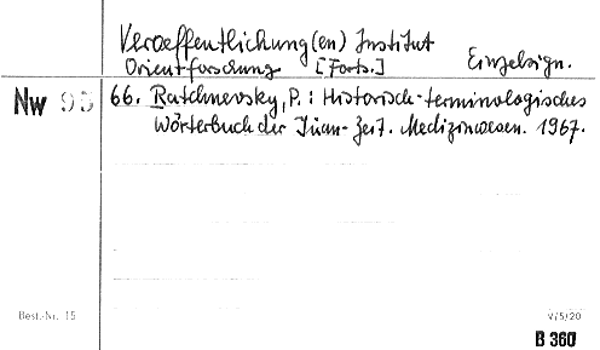 Veroeffentlichung(en) Institut
Orientforschung [Forts.] Einzelsign.
Nw 95 66. Ratchnevsky, P.: Historisch-terminologisches
Wörterbuch der Jüan-Zeit. Medizinwesen. 1967.
Best.-Nr. 15 V/5/20
B 360